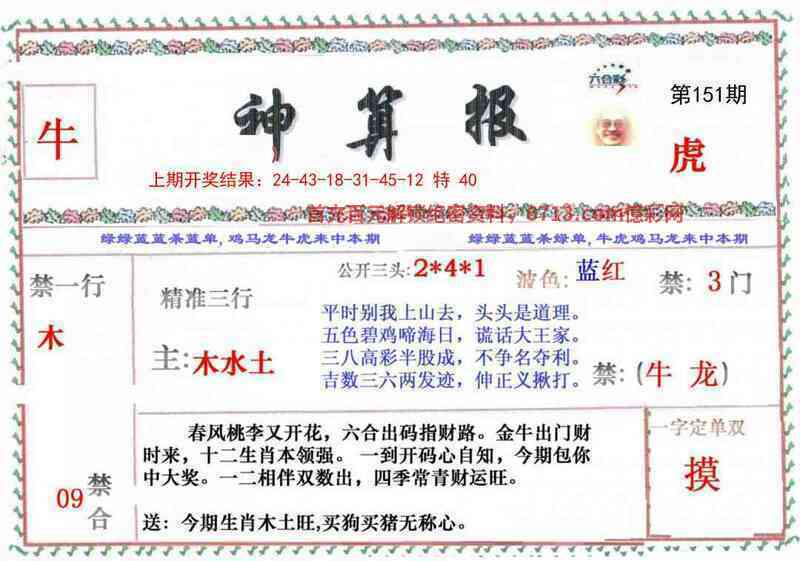 六合彩
第151期
牛
神算报
虎
上期开奖结果：24-43-18-31-45-12 特 40
首充百元解锁绝密资料，6713.com億彩网
绿绿蓝蓝杀蓝单,鸡马龙牛虎来中本期
绿绿蓝蓝杀绿单,牛虎鸡马龙来中本期
禁一行
木
精准三行
主:木水土
公开三头:2*4*1
波色:蓝红
禁: 3门
平时别我上山去，头头是道理。
五色碧鸡啼海日，谎话大王家。
三八高彩半股成，不争名夺利。
吉数三六两发迹，伸正义揪打。
禁:(牛 龙)
09
禁合
春风桃李又开花，六合出码指财路。金牛出门财
时来，十二生肖本领强。 一到开码心自知，今期包你
中大奖。一二相伴双数出，四季常青财运旺。
送：今期生肖木土旺,买狗买猪无称心。
一字定单双
摸